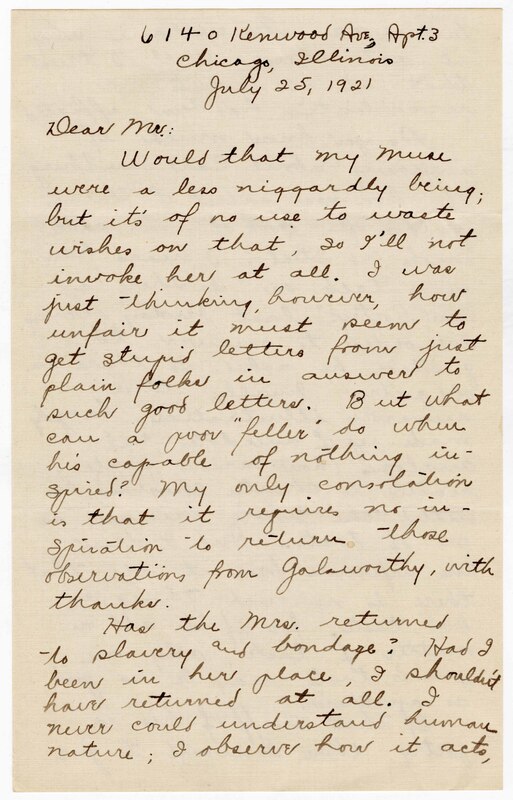 6140 Kenwood Ave, Apt. 3
Chicago, Illinois
July 25, 1921
Dear Mr.:
Would that my muse
were a less niggardly being;
but it's of no use to waste
wishes on that, so I'll not
invoke her at all. I was
just thinking, however, how
unfair it must seem to
get stupid letters from just
plain folks in answer to
such good letters. But what
can a poor "feller" do when
his capable of nothing in-
spired? My only consolation
is that it requires no in-
spiration to return those
observations from Galsworthy, with
thanks.
Has the Mrs. returned
to slavery and bondage? Had I
been in her place, I shouldn't
have returned at all. I
never could understand human
nature; I observe how it acts,